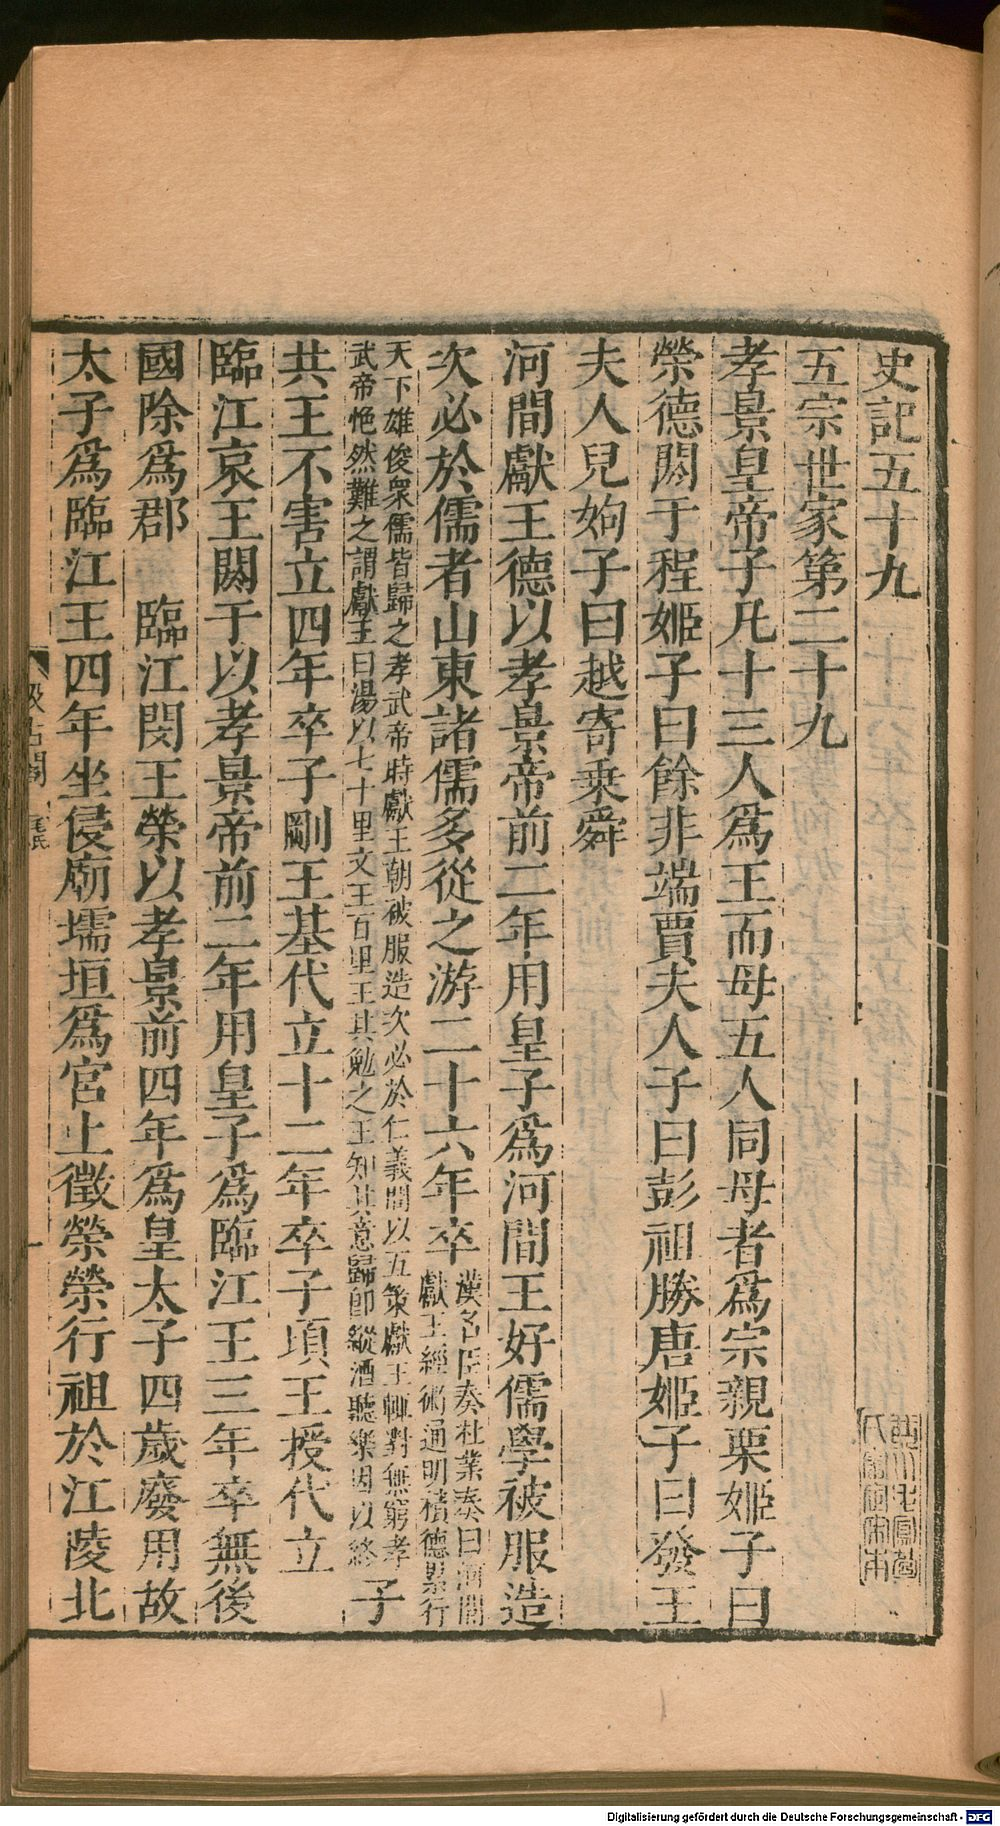 史記五十九
五宗世家第二十九
孝景皇帝子凡十三人爲王而母五人同母者爲宗親栗姬子曰
榮德閼于程姬子曰餘非端賈夫人子曰彭祖勝唐姬子曰發王
夫人兒姁子曰越寄乘舜
河間獻王德以孝景帝前二年用皇子爲河間王好儒學被服造
次必於儒者山東諸儒多從之游二十六年卒
漢名臣奏杜業奏曰河間
獻王經術通明積德累行
天下雄俊衆儒皆歸之孝武帝時獻王朝被服造次必於仁義問以五策獻王輒對無窮孝
武帝艴然難之謂獻王曰湯以七十里文王百里王其勉之王知其意歸卽縱酒聽樂因以終
子
共王不害立四年卒子剛王基代立十二年卒子頃王授代立
臨江哀王閼于以孝景帝前二年用皇子爲臨江王三年卒無後
國除爲郡 臨江閔王榮以孝景前四年爲皇太子四歲廢用故
太子爲臨江王四年坐侵廟壖垣爲宮上徵榮榮行祖於江陵北
汲古閣
毛氏
Digitalisierung gefördert durch die Deutsche Forschungsgemeinschaft - DFG